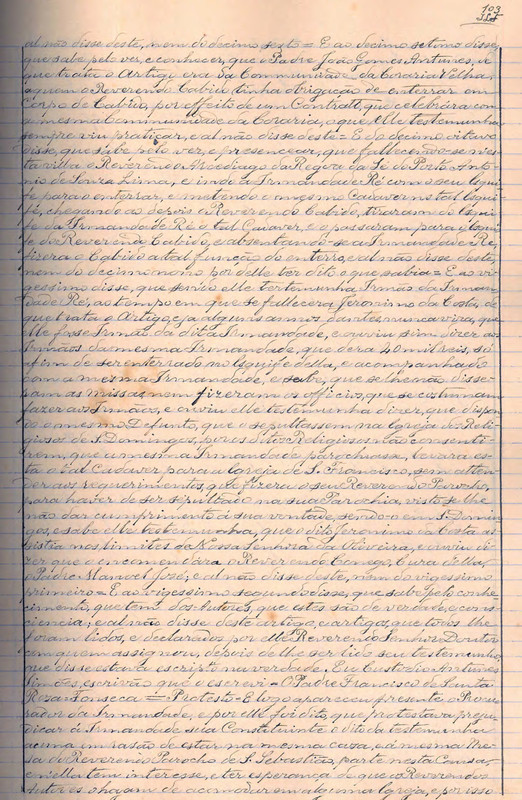 103
al não disse deste, nem do decimo sexto = E ao decimo setimo disse,
que sabe pelo ver, e conhecer, que o Padre João Gomes Antunes, de
que trata o Artigo era da Communidade da Coraria Velha,
a quem o Reverendo Cabido tinha obrigação de enterrar em
Corpo de Cabido, por effeito de um Contrato, que celebrára com
a mesma Communidade da Coraria, o que elle testemunha
sempre viu praticar, e al não disse deste = E do decimo oitavo
disse, que sabe pelo ver, e presencear, que fallecendo-se nes-
ta villa o Reverendo Arcediago da Regoa da Sé do Porto Anto-
nio de Souza Lima, e indo a Irmandade Ré com o seu Esqui-
fe para o enterrar, e mettendo o mesmo Cadaver no tal Esqui-
fe, chegando ao depois o Reverendo Cabido, tiraram do Esqui-
fe da Irmandade de Ré o tal Cadaver, e o passaram para o Esqui-
fe do Reverendo Cabido, e absentando-se a Irmandade Ré,
fizera o Cabido a tal função do enterro, e al não disse deste,
nem do decimo nono por delle ter dito o que sabia = E ao vi-
gessimo disse, que sendo elle testemunha Irmão da Irman-
dade Ré, ao tempo em que se fallecera Jeronimo da Costa, de
que trata o Artigo, e ja alguns annos dantes nunca vira, que
elle fosse Irmão da dita Irmandade, e ouviu sim dizer aos
Irmãos da mesma Irmandade, que dera 40 mil reis, só
afim de ser enterrado no Esquife della, e acompanhado
com a mesma Irmandade, e sabe, que se lhe não disse-
ram as missas nem fizeram os officios, que se costumam
fazer aos Irmãos, e ouviu elle testemunha dizer, que dispon-
do o mesmo Defunto, que o sepultassem na Igreja dos Reli-
giosos de S. Domingos, por os ditos Religiosos não consenti-
rem, que a mesma Irmandade parochiasse, levara es-
ta o tal Cadaver para a Igreja de S. Francisco, sem atten-
der aos requerimentos, que fizera o seu Reverendo Parocho,
para haver de ser sepultado na sua Parochia, visto se lhe
não dar cumprimento á sua vontade, sendo o em S. Domin-
gos, e sabe elle testemunha, que o dito Jeronimo da Costa as-
sistia nos limites da Nossa Senhora da Oliveira, e ouviu di-
zer que o encomendára o Reverendo Conego, Cura della,
o Padre Manuel José; e al não disse deste, nem do vigessimo
primeiro = E ao vigessimo segundo disse, que sabe pelo conhe-
cimento, que tem dos Autores, que estes são de verdade, e cons-
ciencia; e al não disse deste artigo, e artigos, que todos lhe
foram lidos, e declarados por elle Reverendo Senhor Doutor
com quem assignou, depois de lhe ser lido seu testemunho,
que disse estava escripto na verdade. Eu Custodio Antunes
Simões, escrivão que o escrevi = O Padre Francisco de Santa
Rosa Fonseca = Protesto = E logo appareceu presente o Procu-
rador da Irmandade, e por elle foi dito, que protestava preju-
dicar á Irmandade sua Constituinte o dito da testemunha
acima em rasão de estar na mesma casa, e á mesma Me-
sa do Reverendo Parocho de S. Sebastião, parte nesta Causa,
e nella tem interesse, e ter esperança de que os Reverendos
Autores o hajam de accomodar em alguma Igreja, e por isso